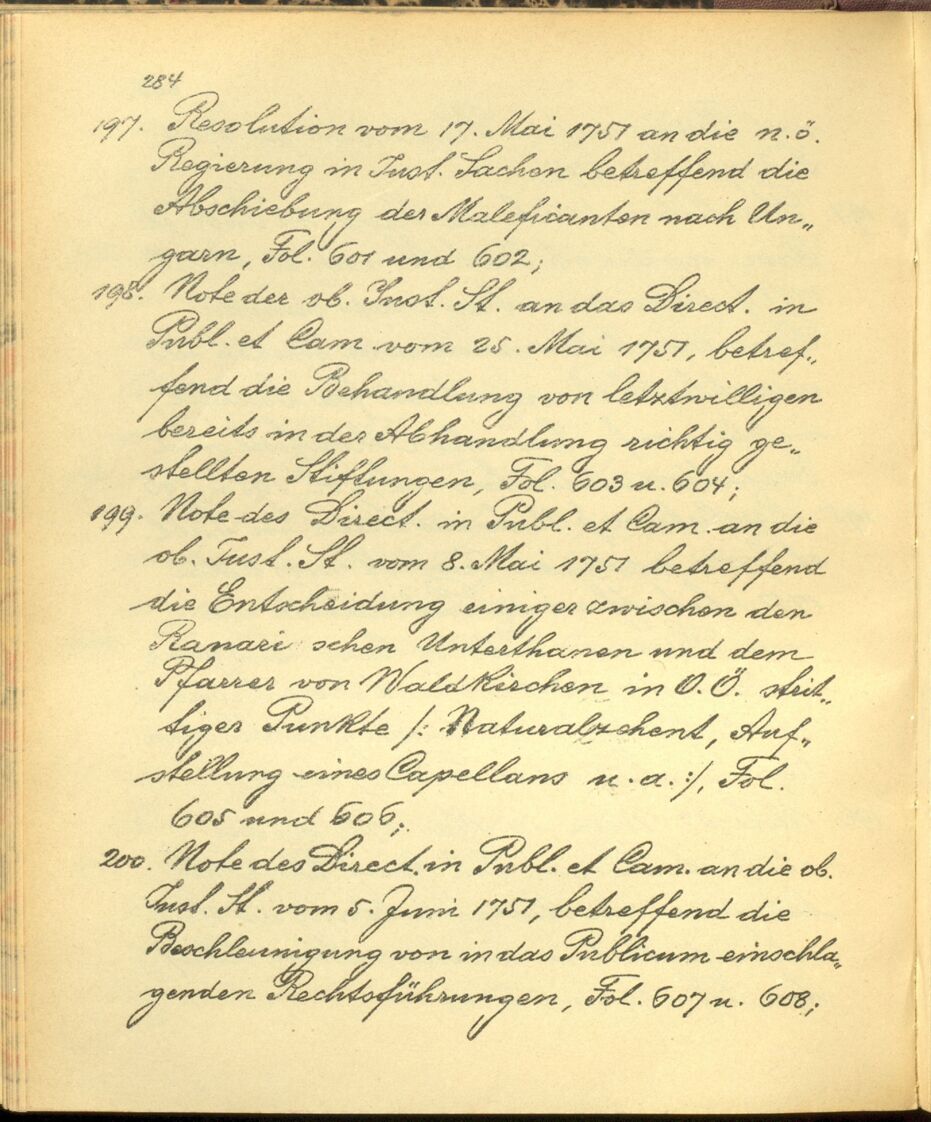 284
197. Resolution vom 17. Mai 1751 an die n. ö.
Regierung in Just. Sachen betreffend die
Abschiebung der Maleficanten nach Un„
garn, Fol. 601 und 602;
198. Note der ob. Just. St. an das Direct. in
Publ. et Cam vom 25. Mai 1751, betref„
fend die Behandlung von letztwilligen
bereits in der Abhandlung richtig ge„
stellten Stiftungen, Fol. 603 u. 604;
199. Note des Direct. in Publ. et Cam. an die
ob. Just. St. vom 8. Mai 1751 betreffend
die Entscheidung einiger zwischen den
Ranari schen Unterthanen und dem
Pfarrer von Waldkirchen in O. Ö. strit„
tiger Punkte /: Naturalzehent, Auf„
stellung eines Capellans u. a. :/, Fol.
605 und 606;
200. Note des Direct. in Publ. et Cam. an die ob.
Just. St. vom 5. Juni 1751, betreffend die
Beschleunigung von in das Publicum einschla„
genden Rechtsführungen, Fol. 607 u. 608;